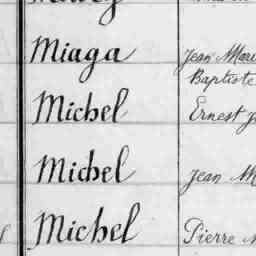 Miaga Jean Mari
Baptiste
Michel Ernest J
Michel Jean M
Michel Pierre M